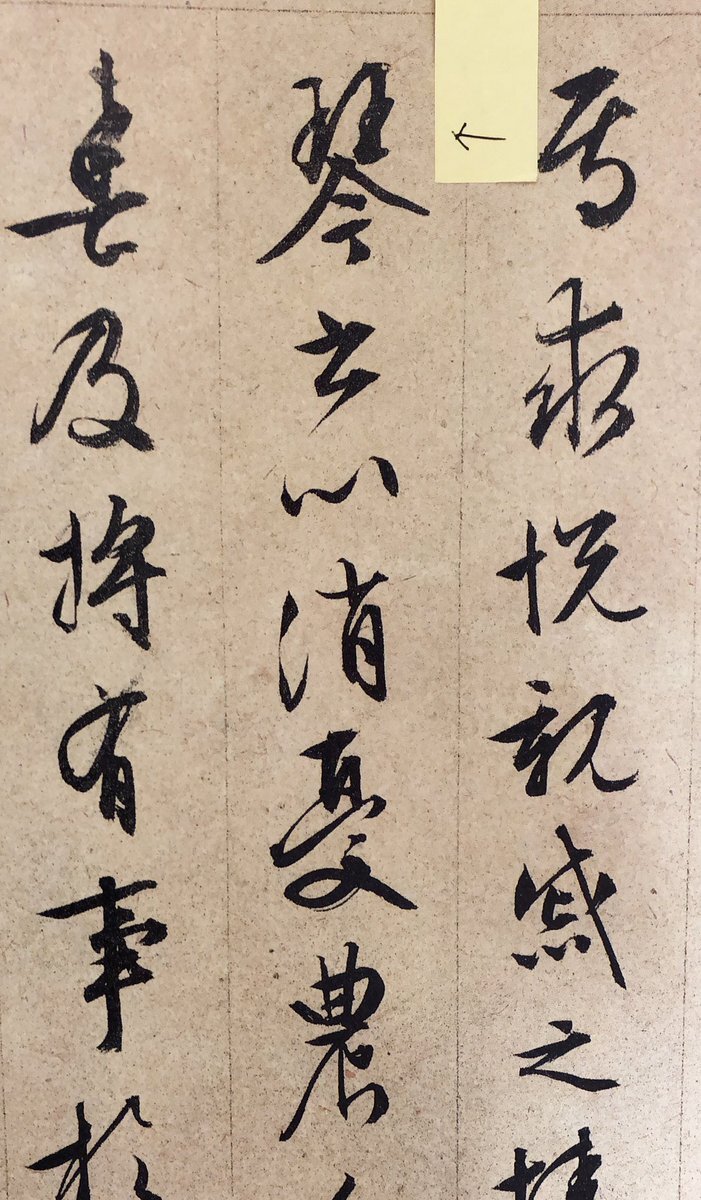 焉求悅親戚之情
琴書以消憂農
春及將有事於